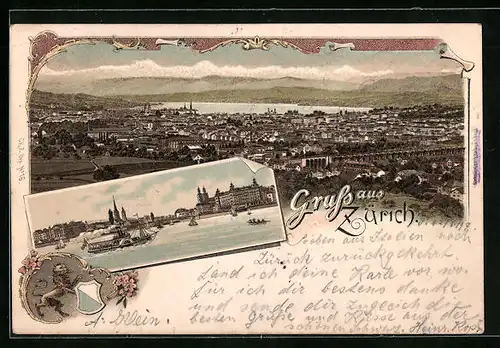 Gruß aus
Zürich.
Soeben aus Italien nach
Zürich zurückgekehrt
fand ich deine Karte vor wo-
für ich dir bestens danke
und sende dir zugleich die
besten Grüße und Küsse aus der
schönen Schweiz. Heinr.